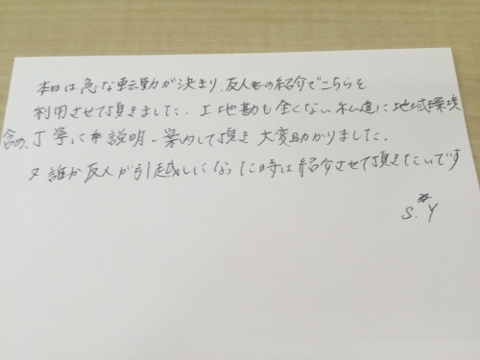 本日は急な転勤が決まり、友人の紹介でこちらを
利用させて頂きました。土地勘も全くない私達に地域環境
含め、丁寧に説明・案内して頂き大変助かりました。
又誰か友人が引越しになった時は紹介させて頂きたいです
S.Y